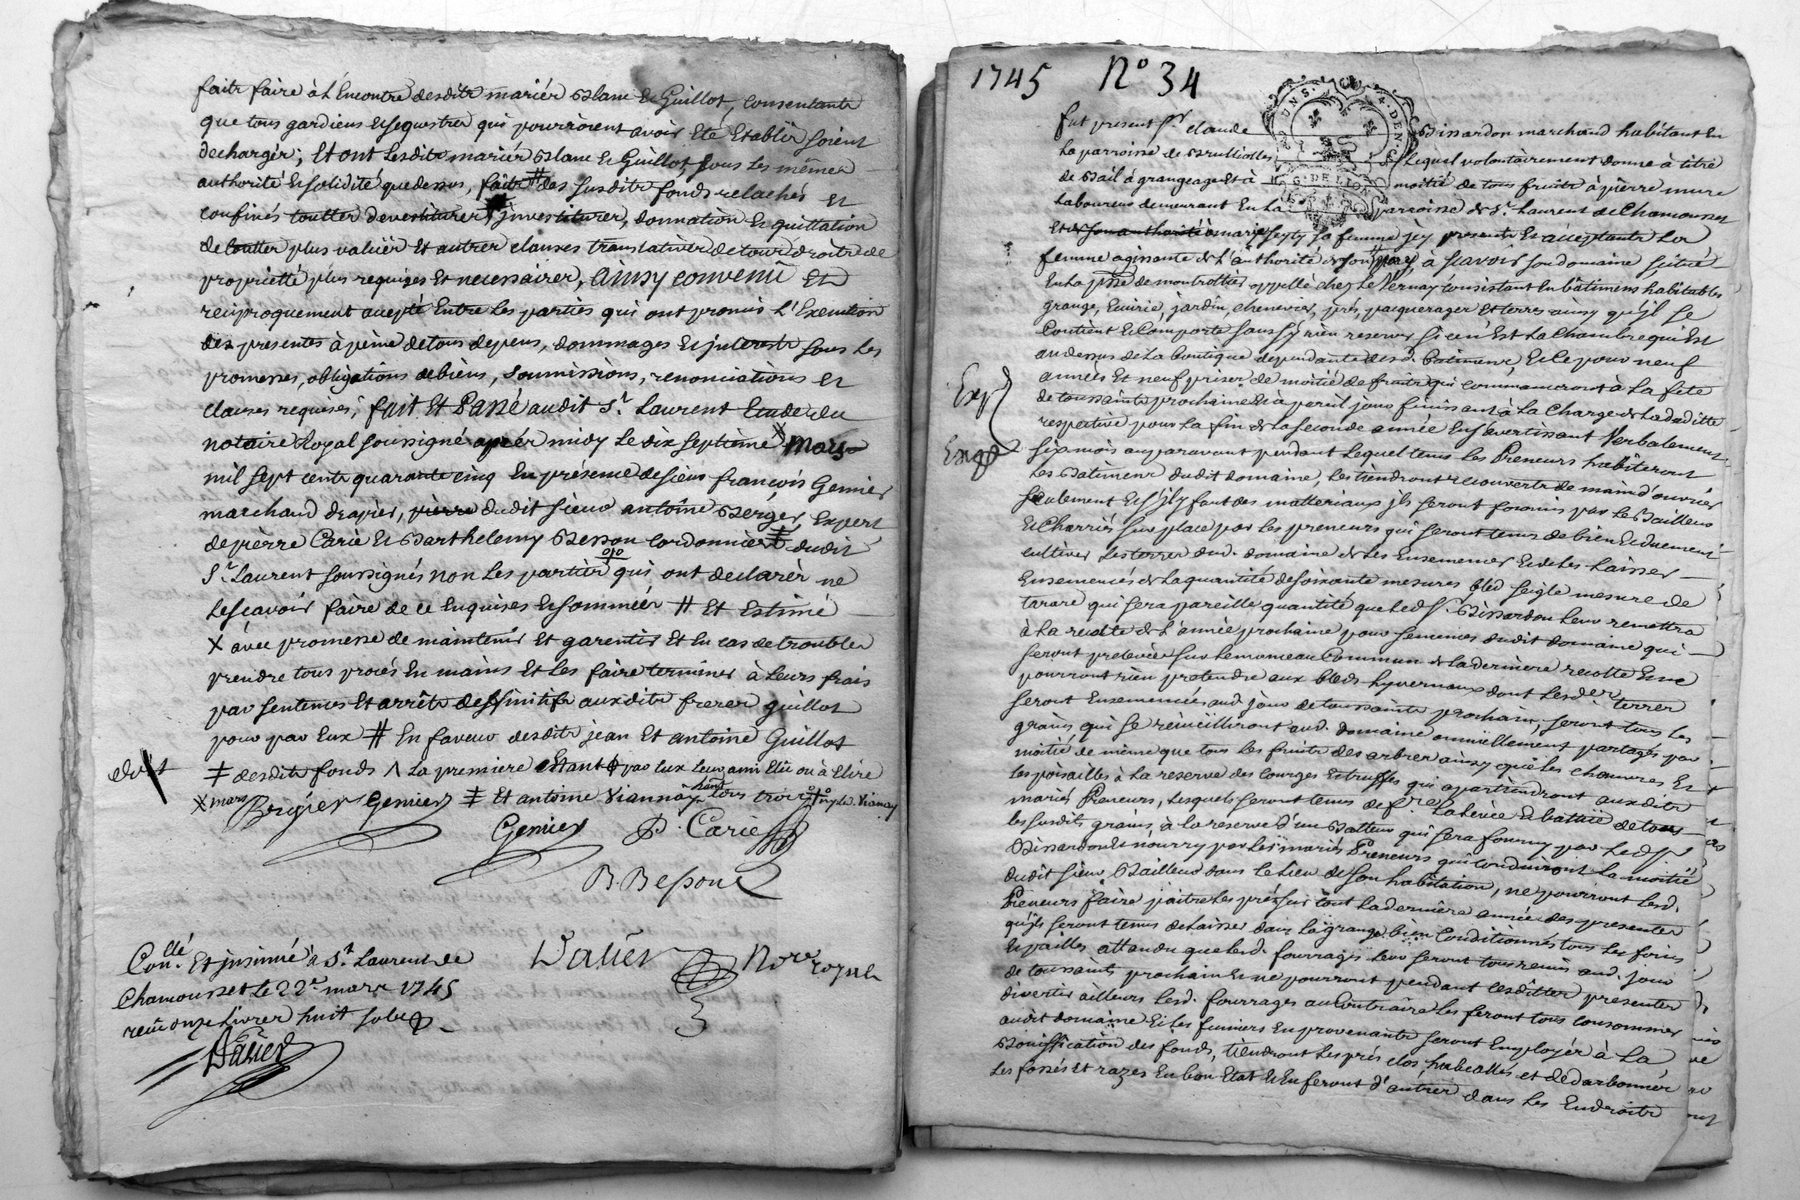 faits faire à l'Encontre desdits mariés Blanc et Guillot, consentants
que tous gardiens et sequestres qui pourroient avoir Eté Etablis soient
dechargés; Et ont Lesdits mariés Blanc et Guillot, sous les mêmes
authorité et solidité que dessus, faits # des susdits fonds relachés et
confinés touttes devestitures, investitures, donnation et quittation
de touttes plus valües Et autres clauses translatives de tous droits de
proprietté plus requises Et necessaires, Ainsy convenû Et
reciproquement accepté Entre Les parties qui ont promis L'Execution
des presentes à peine de tous depens, dommages et interests sous Les
promesses, obligations de biens, soumissions, renonciations et
clauses requises; fait Et Passé audit St. Laurent Etude du
notaire Royal soussigné aprés midy Le dix septieme mars
mil sept cents quarante cinq En présence de sieur françois Genier
marchand drapier, dudit sieur antoine Berger, Expert
de pierre Carié et Barthelemy Besson cordonnier ‡ dudit
St. Laurent soussignés non Les parties qui ont declarés ne
Le sçavoir faire de ce Enquises et sommées # Et Estimé
X avec promesse de maintenir Et garentir Et En cas de troubles
prendre tous procés En mains Et Les faire terminer à Leurs frais
par sentences Et arrêts deffinitifs auxdits freres guillot
pour par Eux # En faveur desdits jean Et antoine Guillot
‡ desdits fonds ∧ La premiere Estant par Eux Leur ami Elû ou à Elire
X mars Brigier Genier ‡ Et antoine Viannay tous trois
Genier P. Carié
B. Besson
Conllé. Et insinué à St. Laurent de
Chamousset Le 22e. mars 1745
reçu onze Livres huit sols
Dalier
Dalier Nore. royal
1745 No 34
fut present Sr. claude Bissardon marchand habitant En
La parroisse de Brullioles Lequel volontairement donne à titre
de Bail à grangeage Et à moitié de tous fruits à pierre mure
Laboureur demeurant En La parroisse de St. Laurent de Chamousset
Et de son authorité marie sa femme icy presents Et acceptants La
femme agissante de L'authorité de son mary, à sçavoir son domaine sçitué
En La psse de montrottier appellé chez Le Vernay consistant En bâtimens habitables
grange, Ecurie, jardin, cheneviers, prés, paquerages Et terres ainsy qu'il se
Contient et Comporte sans s'y rien reserver si ce n'Est La Chambre qui Est
au dessus de La boutique dependante desd. batimens, Et ce pour neuf
années Et neuf prises de moitié de fruits qui commanceront à La fête
de toussaints prochaine Et à pareil jour finissant à La Charge de La deditte
respective pour La fin de La seconde année En s'avertissant Verbalement
six mois auparavant pendant Lequel tems Les Preneurs habiteront
Les Batimens dudit domaine, Les tiendront recouverts de main d'ouvrier
seulement Et s'il y faut des matteriaux ils seront fournis par Le Bailleur
et Charriés sur place par Les preneurs qui seront tenus de bien Et duement
cultiver Les terres dud. domaine de Les Ensemencer Et de Les Laisser
Ensemencés de La quantité de soixante mesures bled seigle mesure de
tarare qui sera pareille quantité que Led. Sr. Bissardon Leur remettra
à La recolte de L'année prochaine pour semences dudit domaine qui
seront prelevées sur Le monceau Commun de La derniere recolte Et ne
pourront rien pretendre aux bleds hyvernaux dont Lesd. terres
seront Ensemencées aud. jour de toussaints prochain, seront tous Les
grains qui se recüeilliront aud. domaine annüellement partagés par
moitié de même que tous Les fruits des arbres ainsy que Les chanvres Et
Les poisailles à La reserve des Courges Et truffes qui apartiendront auxdits
mariés Preneurs, Lesquels seront tenus de fre La Levée Et battüe de tous
Les susdits grains, à La reserve d'un Batteur qui sera fourny par Led. Sr
Bissardon Et nourry par Les mariés Preneurs qui Conduiront La moitié
dudit sieur Bailleur dans Le Lieu de son habitation, ne pourront Lesd.
Preneurs faire paitre Les prés sur tout La derniere année des presentes
qu'ils seront tenus de Laisser dans La grange bien Conditionnés tous Les foins
Et pailles attendu que Lesd. fourrages Leur seront tous remis aud. jour
de toussaints prochain Et ne pourront pendant cesdittes presentes
divertir ailleurs Lesd. fourrages au Contraire Les feront tous consommer
audit domaine Et Les fumiers En provenants seront Employés à La
Bonification des fonds, tiendront Les prés clos, Et dedarbonnés
Les fossés Et razes En bon Etat Et En feront d'autres dans Les Endroits